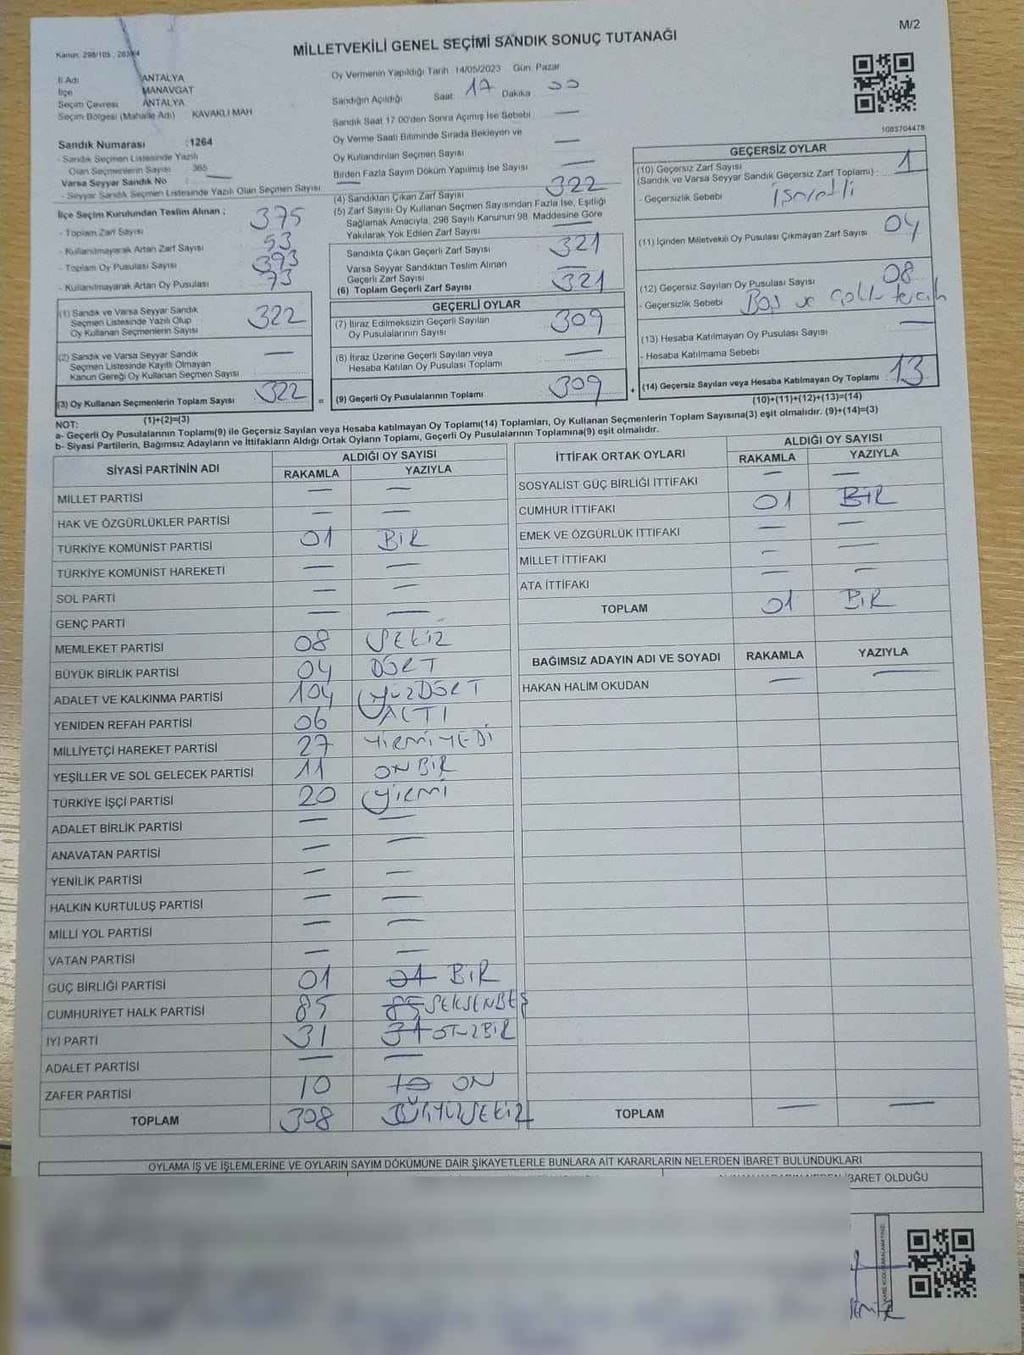 M/2
Kanun: 298/105
MİLLETVEKİLİ GENEL SEÇİMİ SANDIK SONUÇ TUTANAĞI
İl Adı ANTALYA
İlçe MANAVGAT
Seçim Çevresi ANTALYA
Seçim Bölgesi (Mahalle Adı) KAVAKLI MAH
Sandık Numarası :1264
- Sandık Seçmen Listesinde Yazılı
Olan Seçmenlerin Sayısı 365
Varsa Seyyar Sandık No :
- Seyyar Sandık Seçmen Listesinde Yazılı Olan Seçmen Sayısı
İlçe Seçim Kurulundan Teslim Alınan ;
- Toplam Zarf Sayısı 375
- Kullanılmayarak Artan Zarf Sayısı 53
- Toplam Oy Pusulası Sayısı 393
- Kullanılmayarak Artan Oy Pusulası 73
(1) Sandık ve Varsa Seyyar Sandık
Seçmen Listesinde Yazılı Olup
Oy Kullanan Seçmenlerin Sayısı 322
(2) Sandık ve Varsa Seyyar Sandık
Seçmen Listesinde Kayıtlı Olmayan
Kanun Gereği Oy Kullanan Seçmen Sayısı —
(3) Oy Kullanan Seçmenlerin Toplam Sayısı 322
(1)+(2)=(3)
Oy Vermenin Yapıldığı Tarih :14/05/2023 Gün: Pazar
Sandığın Açıldığı Saat 17 Dakika 00
Sandık Saat 17.00'den Sonra Açılmış İse Sebebi —
Oy Verme Saati Bitiminde Sırada Bekleyen ve
Oy Kullandırılan Seçmen Sayısı —
Birden Fazla Sayım Döküm Yapılmış İse Sayısı —
(4) Sandıktan Çıkan Zarf Sayısı 322
(5) Zarf Sayısı Oy Kullanan Seçmen Sayısından Fazla İse, Eşitliği
Sağlamak Amacıyla, 298 Sayılı Kanunun 98. Maddesine Göre
Yakılarak Yok Edilen Zarf Sayısı —
Sandıkta Çıkan Geçerli Zarf Sayısı 321
Varsa Seyyar Sandıktan Teslim Alınan
Geçerli Zarf Sayısı —
(6) Toplam Geçerli Zarf Sayısı 321
GEÇERLİ OYLAR
(7) İtiraz Edilmeksizin Geçerli Sayılan
Oy Pusulalarının Sayısı 309
(8) İtiraz Üzerine Geçerli Sayılan veya
Hesaba Katılan Oy Pusulası Toplamı —
= (9) Geçerli Oy Pusulalarının Toplamı 309 +
1083704478
GEÇERSİZ OYLAR
(10) Geçersiz Zarf Sayısı
(Sandık ve Varsa Seyyar Sandık Geçersiz Zarf Toplamı) : 1
- Geçersizlik Sebebi işaretli
(11) İçinden Milletvekili Oy Pusulası Çıkmayan Zarf Sayısı 04
(12) Geçersiz Sayılan Oy Pusulası Sayısı 08
- Geçersizlik Sebebi Boş ve çoklu tercih
(13) Hesaba Katılmayan Oy Pusulası Sayısı —
- Hesaba Katılmama Sebebi
(14) Geçersiz Sayılan veya Hesaba Katılmayan Oy Toplamı 13
(10)+(11)+(12)+(13)=(14)
NOT:
a- Geçerli Oy Pusulalarının Toplamı(9) ile Geçersiz Sayılan veya Hesaba katılmayan Oy Toplamı(14) Toplamları, Oy Kullanan Seçmenlerin Toplam Sayısına(3) eşit olmalıdır. (9)+(14)=(3)
b- Siyasi Partilerin, Bağımsız Adayların ve İttifakların Aldığı Ortak Oyların Toplamı, Geçerli Oy Pusulalarının Toplamına(9) eşit olmalıdır.
SİYASİ PARTİNİN ADI ALDIĞI OY SAYISI
RAKAMLA YAZIYLA
MİLLET PARTİSİ — —
HAK VE ÖZGÜRLÜKLER PARTİSİ — —
TÜRKİYE KOMÜNİST PARTİSİ 01 BİR
TÜRKİYE KOMÜNİST HAREKETİ — —
SOL PARTİ — —
GENÇ PARTİ — —
MEMLEKET PARTİSİ 08 SEKİZ
BÜYÜK BİRLİK PARTİSİ 04 DÖRT
ADALET VE KALKINMA PARTİSİ 104 YÜZDÖRT
YENİDEN REFAH PARTİSİ 06 ALTI
MİLLİYETÇİ HAREKET PARTİSİ 27 YİRMİYEDİ
YEŞİLLER VE SOL GELECEK PARTİSİ 11 ONBİR
TÜRKİYE İŞÇİ PARTİSİ 20 YİRMİ
ADALET BİRLİK PARTİSİ — —
ANAVATAN PARTİSİ — —
YENİLİK PARTİSİ — —
HALKIN KURTULUŞ PARTİSİ — —
MİLLİ YOL PARTİSİ — —
VATAN PARTİSİ — —
GÜÇ BİRLİĞİ PARTİSİ 01 01 BİR
CUMHURİYET HALK PARTİSİ 85 85 SEKSENBEŞ
İYİ PARTİ 31 31 OTUZBİR
ADALET PARTİSİ — —
ZAFER PARTİSİ 10 10 ON
TOPLAM 308 ÜÇYÜZSEKİZ
İTTİFAK ORTAK OYLARI ALDIĞI OY SAYISI
RAKAMLA YAZIYLA
SOSYALİST GÜÇ BİRLİĞİ İTTİFAKI — —
CUMHUR İTTİFAKI 01 BİR
EMEK VE ÖZGÜRLÜK İTTİFAKI — —
MİLLET İTTİFAKI — —
ATA İTTİFAKI — —
TOPLAM 01 BİR
BAĞIMSIZ ADAYIN ADI VE SOYADI RAKAMLA YAZIYLA
HAKAN HALİM OKUDAN — —
TOPLAM — —
OYLAMA İŞ VE İŞLEMLERİNE VE OYLARIN SAYIM DÖKÜMÜNE DAİR ŞİKAYETLERLE BUNLARA AİT KARARLARIN NELERDEN İBARET BULUNDUKLARI
İBARET OLDUĞU